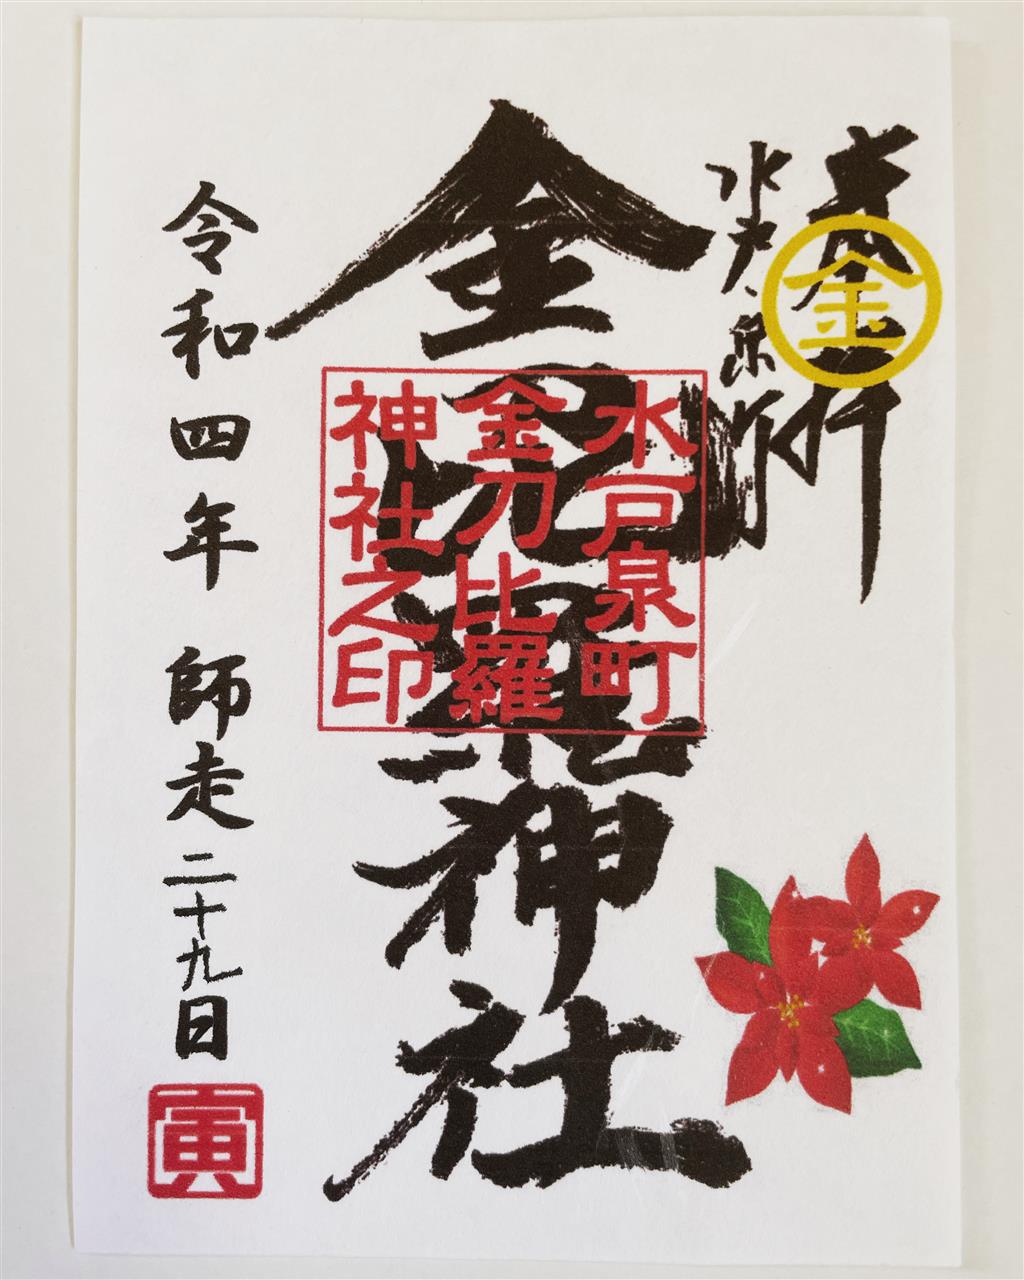 奉拝
水戸、泉町
金
金刀比羅神社
水戸泉町
金刀比羅
神社之印
令和四年 師走二十九日
寅